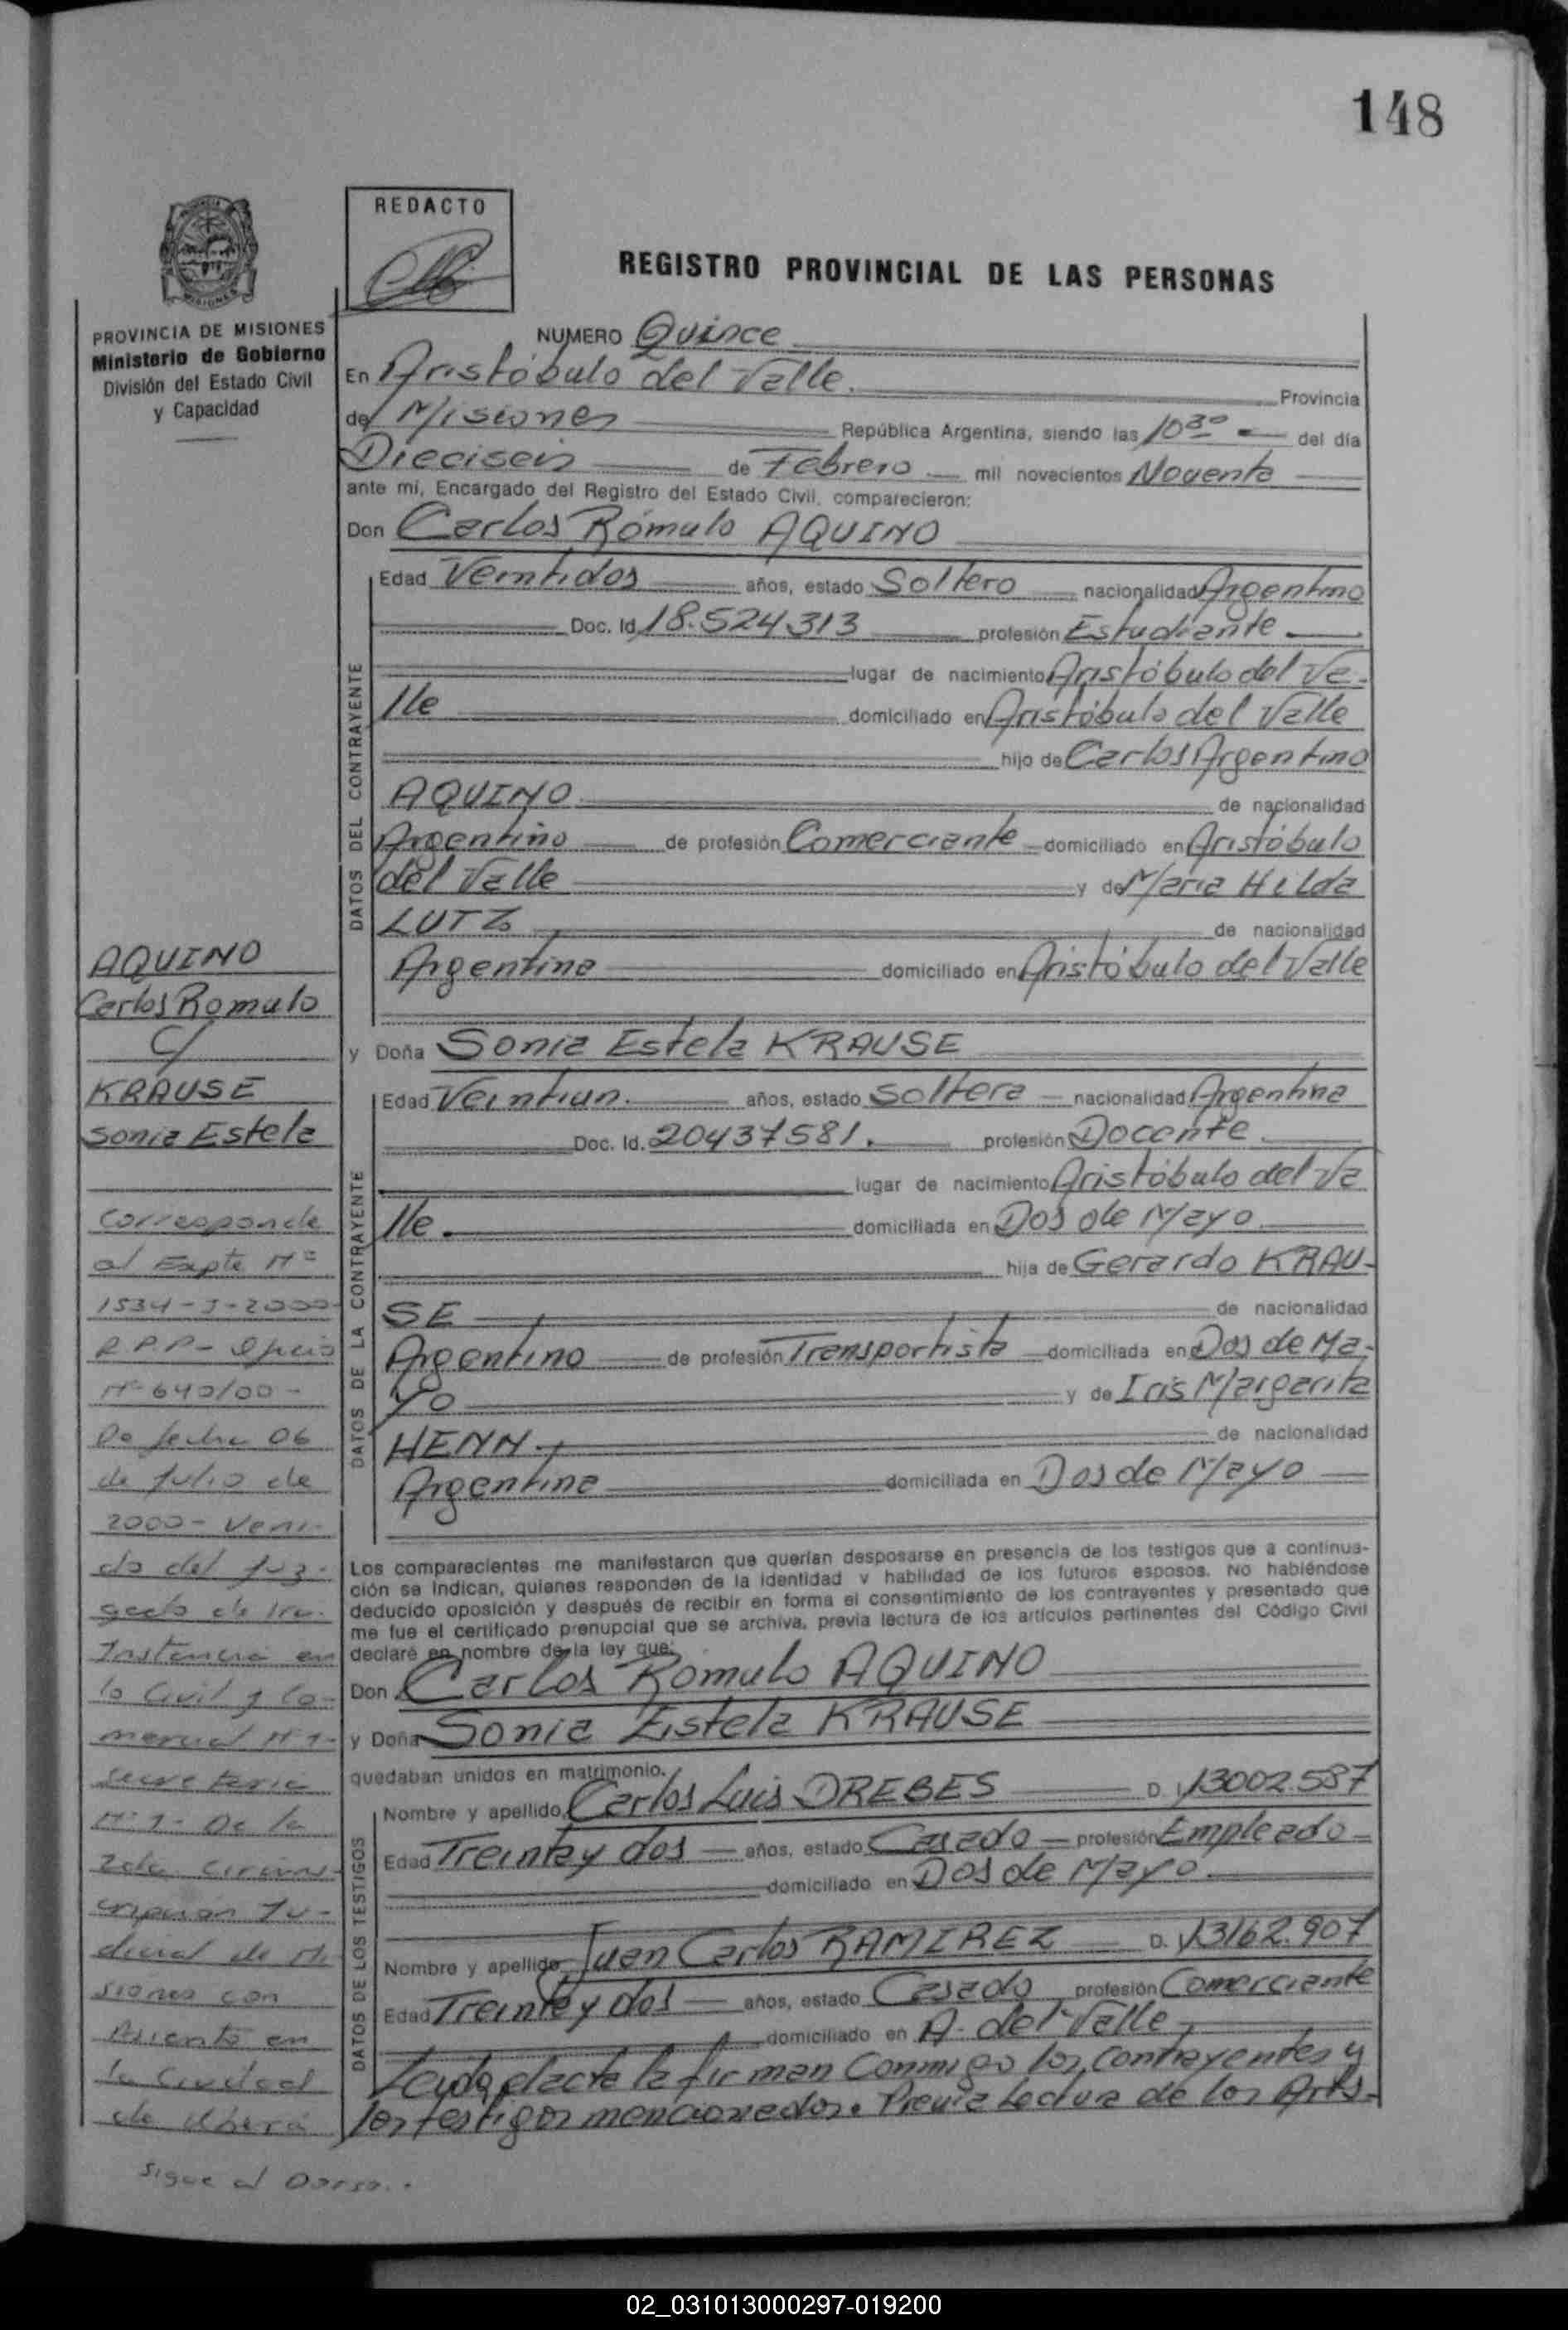 148
REDACTO
REGISTRO PROVINCIAL DE LAS PERSONAS
PROVINCIA DE MISIONES
Ministerio de Gobierno
División del Estado Civil
y Capacidad
NUMERO Quince
En Aristóbulo del Valle. Provincia
de Misiones República Argentina, siendo las 10 30 del día
Dieciseis de Febrero mil novecientos Noventa
ante mí, Encargado del Registro del Estado Civil, comparecieron:
Don Carlos Rómulo AQUINO
DATOS DEL CONTRAYENTE
Edad Veintidos años, estado Soltero nacionalidad Argentino
Doc. Id. 18.524.313 profesión Estudiante
lugar de nacimiento Aristóbulo del Va-
lle domiciliado en Aristóbulo del Valle
hijo de Carlos Argentino
AQUINO de nacionalidad
Argentino de profesión Comerciante domiciliado en Aristóbulo
del Valle y de Maria Hilda
LUTZ de nacionalidad
Argentina domiciliado en Aristóbulo del Valle
y Doña Sonia Estela KRAUSE
DATOS DE LA CONTRAYENTE
Edad Veintiun. años, estado Soltera nacionalidad Argentina
Doc. Id. 20437581. profesión Docente
lugar de nacimiento Aristóbulo del Va
lle domiciliada en Dos de Mayo
hija de Gerardo KRAU-
SE de nacionalidad
Argentino de profesión Transportista domiciliada en Dos de Ma-
yo y de Iris Margarita
HENN de nacionalidad
Argentina domiciliada en Dos de Mayo
Los comparecientes me manifestaron que querían desposarse en presencia de los testigos que a continua-
ción se indican, quienes responden de la identidad y habilidad de los futuros esposos. No habiéndose
deducido oposición y después de recibir en forma el consentimiento de los contrayentes y presentado que
me fue el certificado prenupcial que se archiva, previa lectura de los artículos pertinentes del Código Civil
declaré en nombre de la ley que:
Don Carlos Rómulo AQUINO
y Doña Sonia Estela KRAUSE
quedaban unidos en matrimonio.
DATOS DE LOS TESTIGOS
Nombre y apellido Carlos Luis DREBES D. I. 13002.587
Edad Treinta y dos años, estado Casado profesión Empleado
domiciliado en Dos de Mayo
Nombre y apellido Juan Carlos RAMIREZ D. I. 13162.907
Edad Treinta y dos años, estado Casado profesión Comerciante
domiciliado en A. del Valle
Leida el acta la firman Conmigo los contrayentes y
los testigos mencionados. Previa Lectura de los Arts-
AQUINO
Carlos Romulo
c/
KRAUSE
Sonia Estela
Corresponde
al Expte Nº
1534-J-2000-
R.P.P- Oficio
Nº 640/00-
De fecha 06
de Julio de
2000- Veni-
do del Juz-
gado de 1ra.
Instancia en
lo Civil y Co-
mercial Nº 1-
secretaria
Nº 1- De la
2da Circuns-
cripcion Ju-
dicial de Mi
siones con
Asiento en
la Ciudad
de Oberá
Sigue al Dorso..
02_031013000297-019200